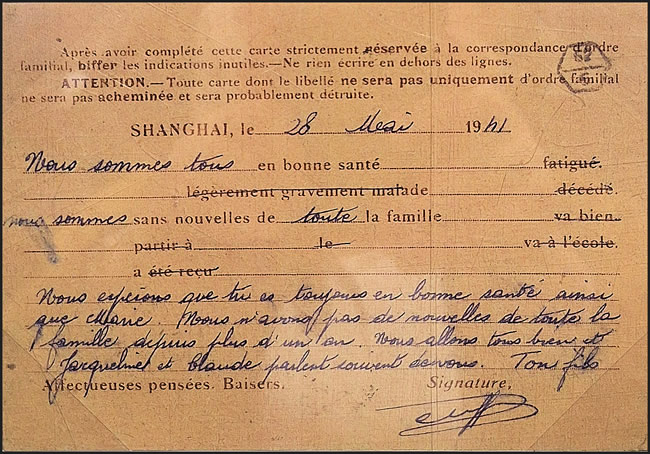 Après avoir complété cette carte strictement réservée à la correspondance d'ordre
familial, biffer les indications inutiles.—Ne rien écrire en dehors des lignes.
ATTENTION.—Toute carte dont le libellé ne sera pas uniquement d'ordre familial
ne sera pas acheminée et sera probablement détruite.
SHANGHAI, le 28 Mai 1941
Nous sommes tous en bonne santé fatigué.
légèrement gravement malade décédé.
nous sommes sans nouvelles de toute la famille va bien.
partir à le va à l'école.
a été reçu
Nous espérons que tu es toujours en bonne santé ainsi
que Marie. Nous n'avons pas de nouvelles de toute la
famille depuis plus d'un an. Nous allons tous bien et
Jacqueline et Claude parlent souvent de vous. Ton fils
Affectueuses pensées. Baisers. Signature,